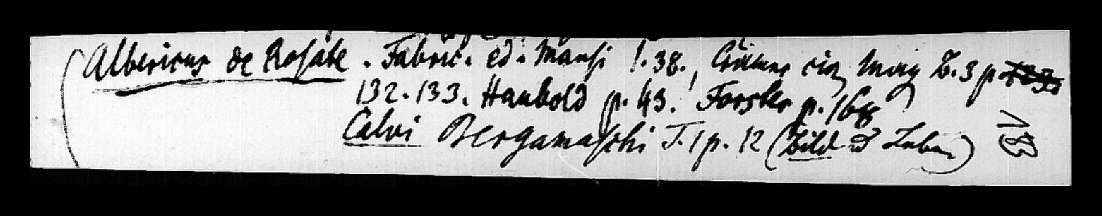 Albericus de Rosate. Fabric. ed. Mansi 1.38., civ. Mag Z. 3 p.
132. 133. Haubold p. 43. Forster p. 168
Calvi Bergamaschi T. 1 p. 12 (Bild & Leben)
183